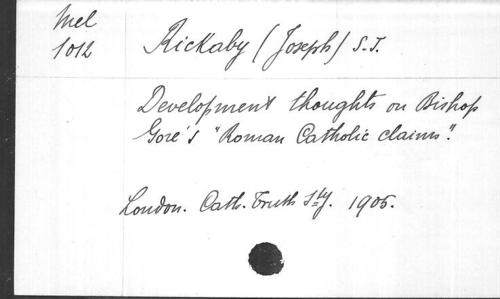 Mel
1012
Rickaby (Joseph) S.J.
Development thoughts on Bishop
Gore's "Roman Catholic claims".
London. Cath. Truth Sty. 1905.